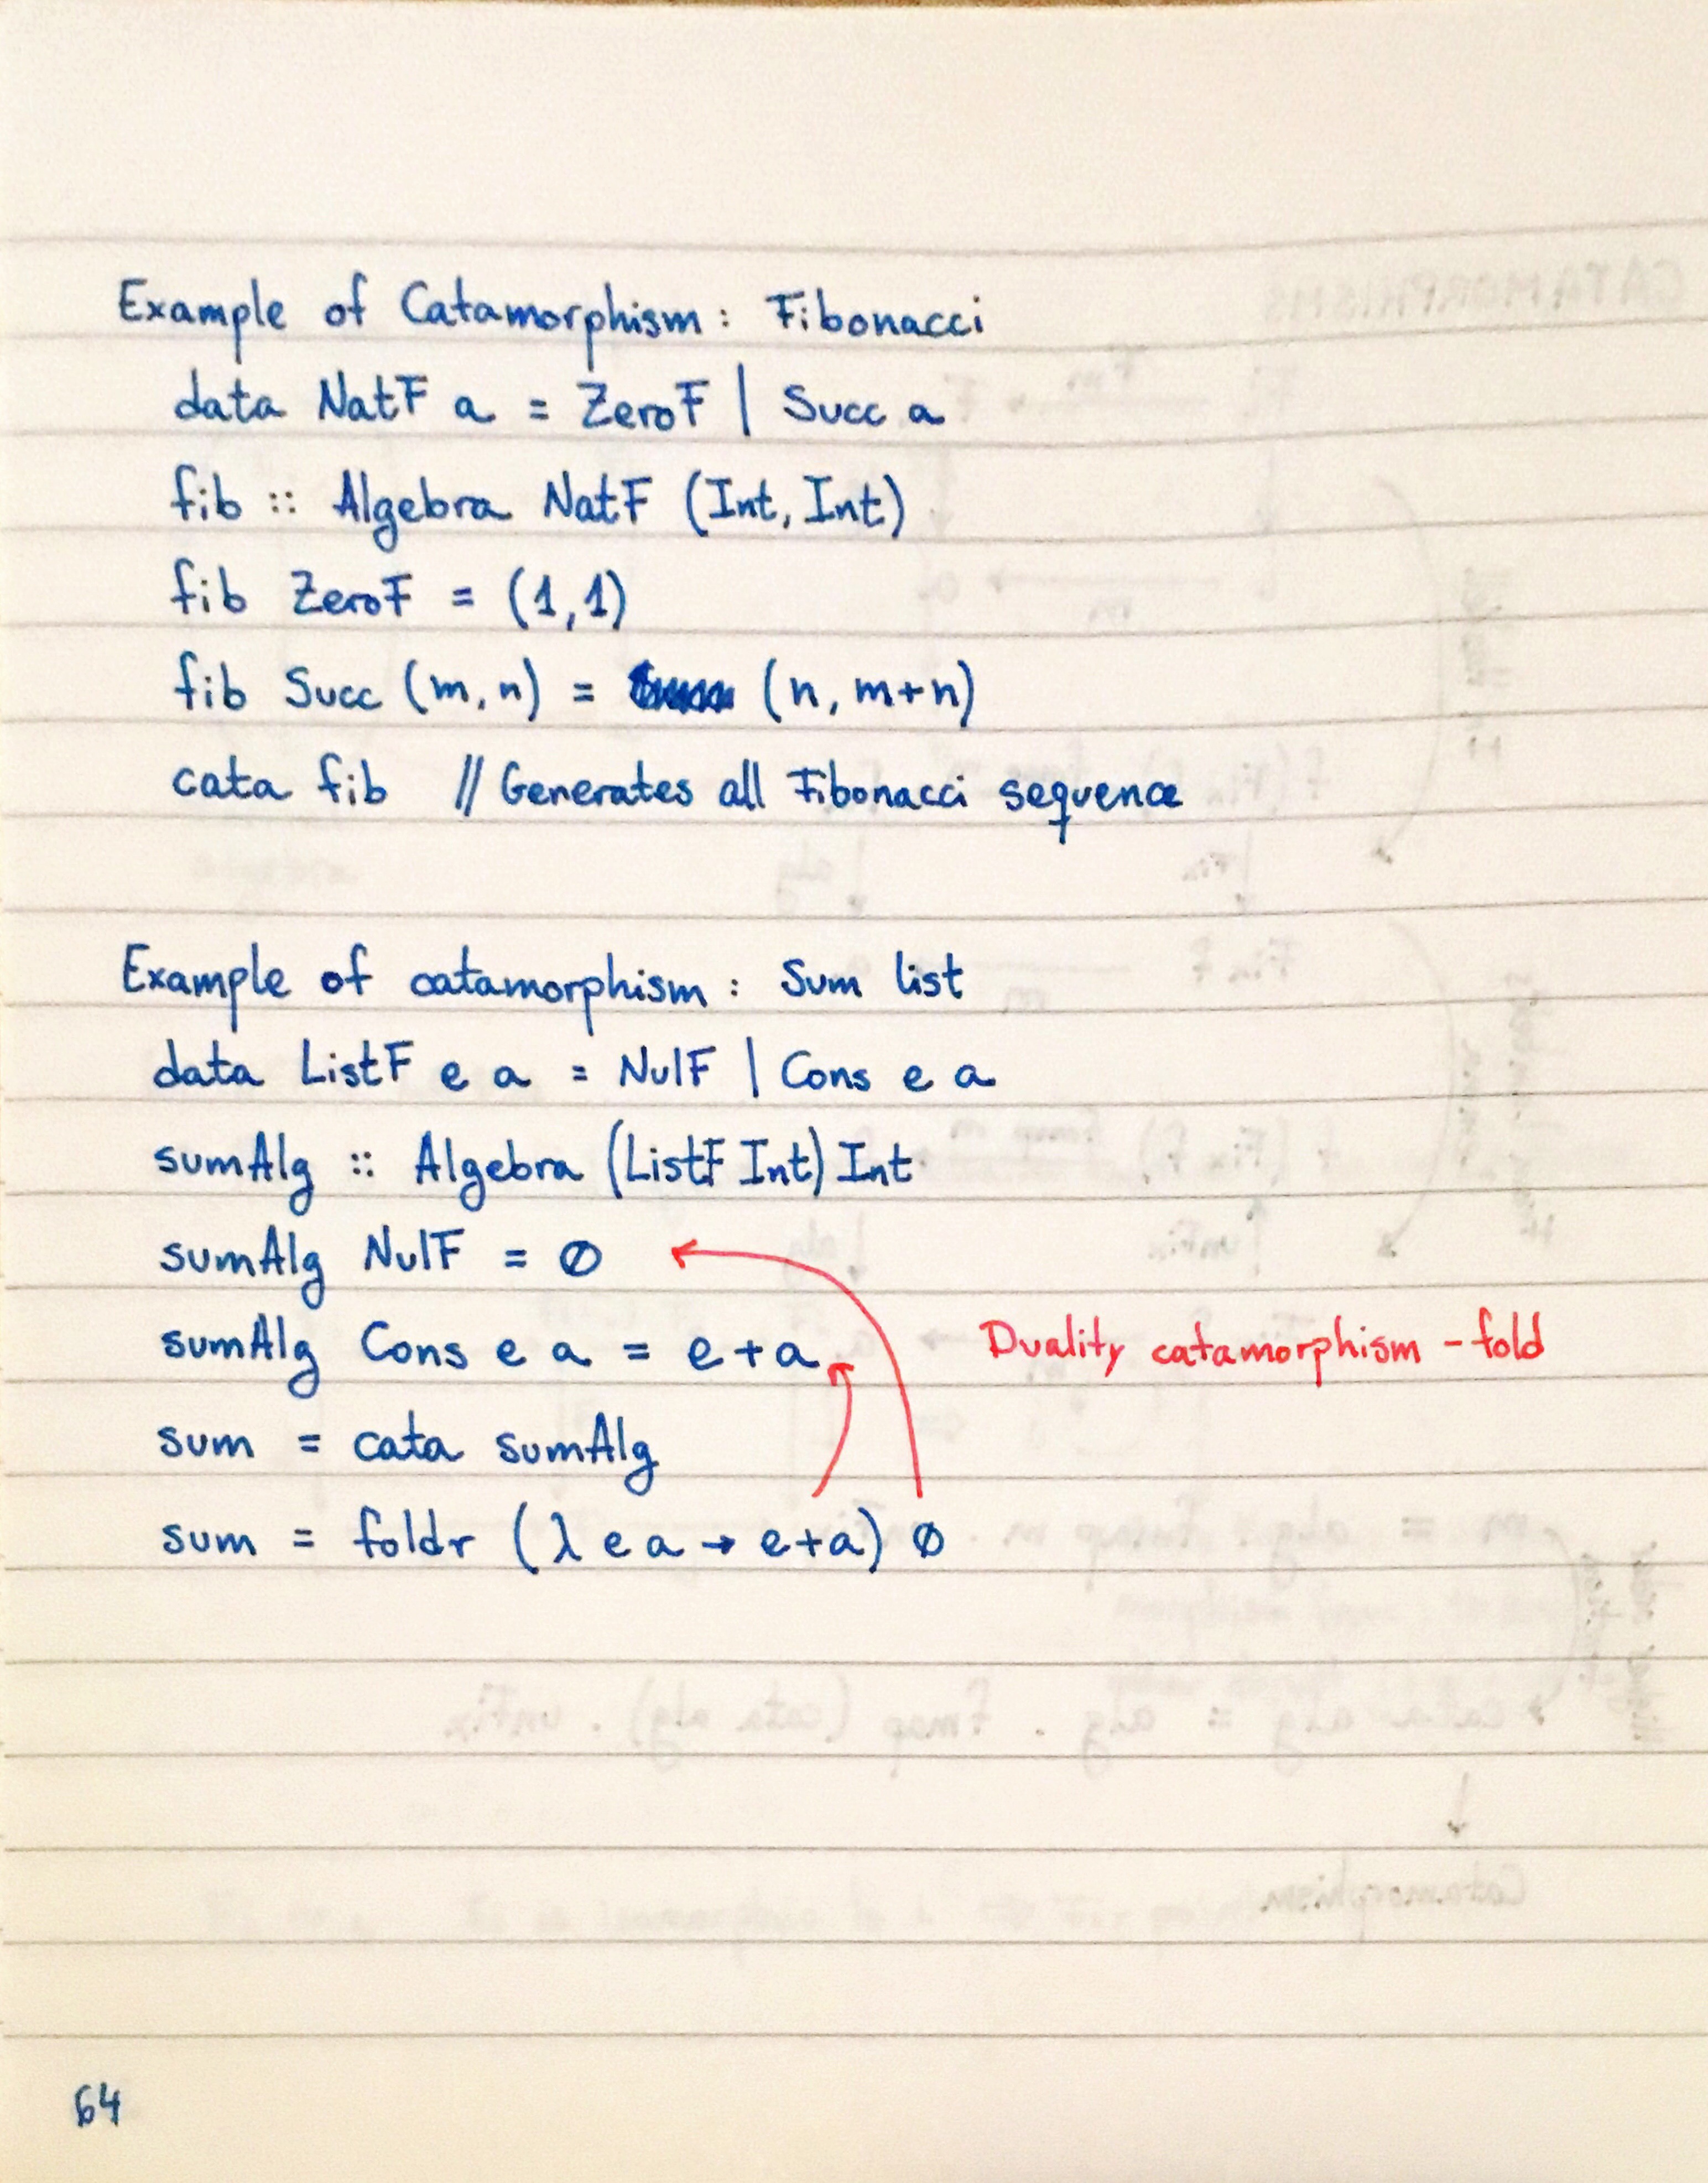 Example of Catamorphism: Fibonacci
data NatF a = ZeroF | Succ a
fib :: Algebra NatF (Int, Int)
fib ZeroF = (1,1)
fib Succ (m,n) = (n, m+n)
cata fib // Generates all Fibonacci sequence
Example of catamorphism: Sum list
data ListF e a = NulF | Cons e a
sumAlg :: Algebra (ListF Int) Int
sumAlg NulF = 0
sumAlg Cons e a = e+a
Duality catamorphism - fold
sum = cata sumAlg
sum = foldr (λ e a → e+a) 0
64